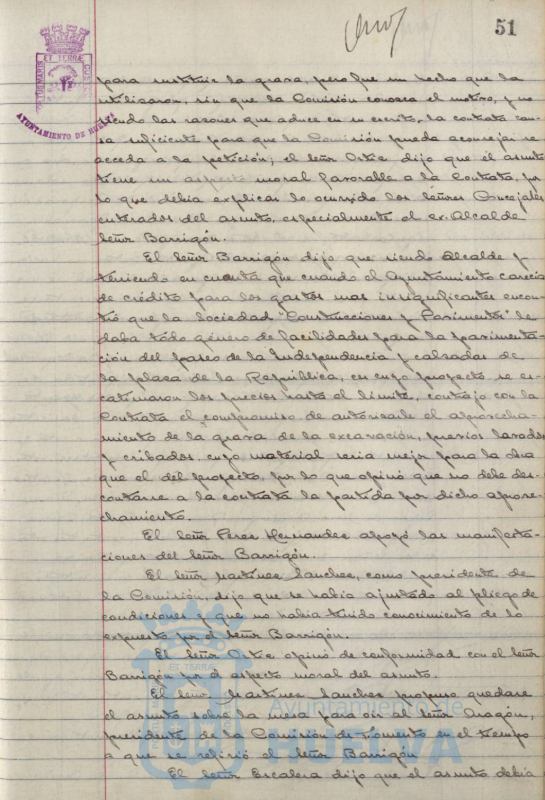 51
para sustituir la grava, pero fue un hecho que la
utilizaron, sin que la Comisión conozca el motivo, y no
siendo las razones que aduce en su escrito, la contrata cau-
sa suficiente para que la Comisión pueda aconsejar se
acceda a la petición; el señor Ortiz dijo que el asunto
tiene un aspecto moral favorable a la Contrata, por
lo que debía explicar lo ocurrido los señores Concejales
enterados del asunto, especialmente el ex-Alcalde
señor Barrigón.
El señor Barrigón dijo que siendo Alcalde y
teniendo en cuenta que cuando el Ayuntamiento carecía
de crédito para los gastos mas insignificantes encon-
tró que la Sociedad "Construcciones y Pavimentos" le
daba todo género de facilidades para la pavimenta-
ción del paseo de la Independencia y calzadas de
la plaza de la República, en cuyo proyecto se es-
catimaron los precios hasta el límite, contrajo con la
Contrata el compromiso de autorizarle el aprovecha-
miento de la grava de la excavación, previos lavados
y cribados, cuyo material sería mejor para la obra
que el del proyecto, por lo que opinó que no debe des-
contarse a la contrata la partida por dicho aprove-
chamiento.
El señor Perez Hernandez apoyó las manifesta-
ciones del señor Barrigón.
El señor Martinez Sanchez, como presidente de
la Comisión, dijo que se había ajustado al pliego de
condiciones y que no había tenido conocimiento de lo
expuesto por el señor Barrigón.
El señor Ortiz opinó de conformidad con el señor
Barrigón por el aspecto moral del asunto.
El señor Martinez Sanchez propuso quedase
el asunto sobre la mesa para oir al señor Aragón,
presidente de la Comisión de Fomento en el tiempo
a que se refirió el señor Barrigón
El señor Escalera dijo que el asunto debía
AYUNTAMIENTO DE HUELVA
Ayuntamiento de
HUELVA